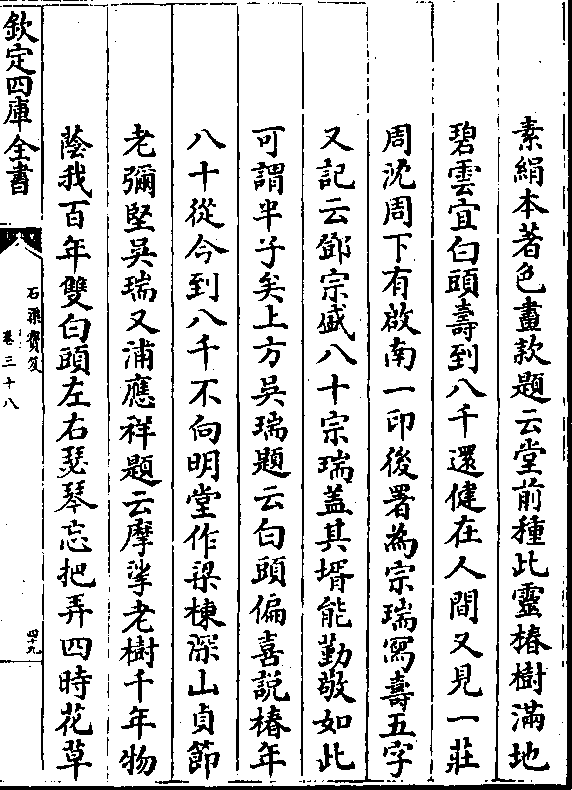 素絹本著色畫款題云堂前種此靈椿樹滿地
碧雲宜白頭壽到八千還健在人間又見一莊
周沈周下有啟南一印後署為宗瑞寫壽五字
又記云鄧宗盛八十宗瑞蓋其壻能勤敬如此
可謂半子矣上方吳瑞題云白頭偏喜説椿年
八十從今到八千不向明堂作梁棟深山貞節
老彌堅吳瑞又浦應祥題云摩挲老樹千年物
蔭我百年雙白頭左右瑟琴忘把弄四時花草
欽定四庫全書
石渠寶笈
卷三十八
四十九